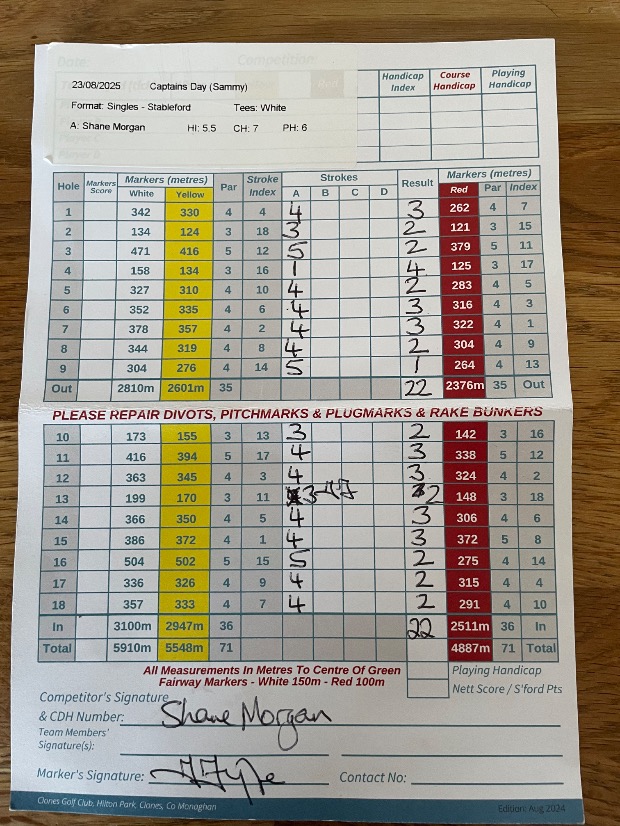 Date: Competition:
23/08/2025 Captains Day (Sammy)
Format: Singles - Stableford Tees: White
A: Shane Morgan HI: 5.5 CH: 7 PH: 6
Handicap Index Course Handicap Playing Handicap
Hole Markers Score Markers (metres) Par Stroke Index Strokes Result Markers (metres)
White Yellow A B C D Red Par Index
1 342 330 4 4 4 3 262 4 7
2 134 124 3 18 3 2 121 3 15
3 471 416 5 12 5 2 379 5 11
4 158 134 3 16 1 4 125 3 17
5 327 310 4 10 4 2 283 4 5
6 352 335 4 6 4 3 316 4 3
7 378 357 4 2 4 3 322 4 1
8 344 319 4 8 4 2 304 4 9
9 304 276 4 14 5 1 264 4 13
Out 2810m 2601m 35 22 2376m 35 Out
PLEASE REPAIR DIVOTS, PITCHMARKS & PLUGMARKS & RAKE BUNKERS
10 173 155 3 13 3 2 142 3 16
11 416 394 5 17 4 3 338 5 12
12 363 345 4 3 4 3 324 4 2
13 199 170 3 11 3 2 148 3 18
14 366 350 4 5 4 3 306 4 6
15 386 372 4 1 4 3 372 5 8
16 504 502 5 15 5 2 275 4 14
17 336 326 4 9 4 2 315 4 4
18 357 333 4 7 4 2 291 4 10
In 3100m 2947m 36 22 2511m 36 In
Total 5910m 5548m 71 4887m 71 Total
All Measurements In Metres To Centre Of Green
Fairway Markers - White 150m - Red 100m
Playing Handicap
Nett Score / S'ford Pts
Competitor's Signature
& CDH Number: Shane Morgan
Team Members'
Signature(s):
Marker's Signature: Contact No:
Clones Golf Club, Hilton Park, Clones, Co Monaghan Edition: Aug 2024